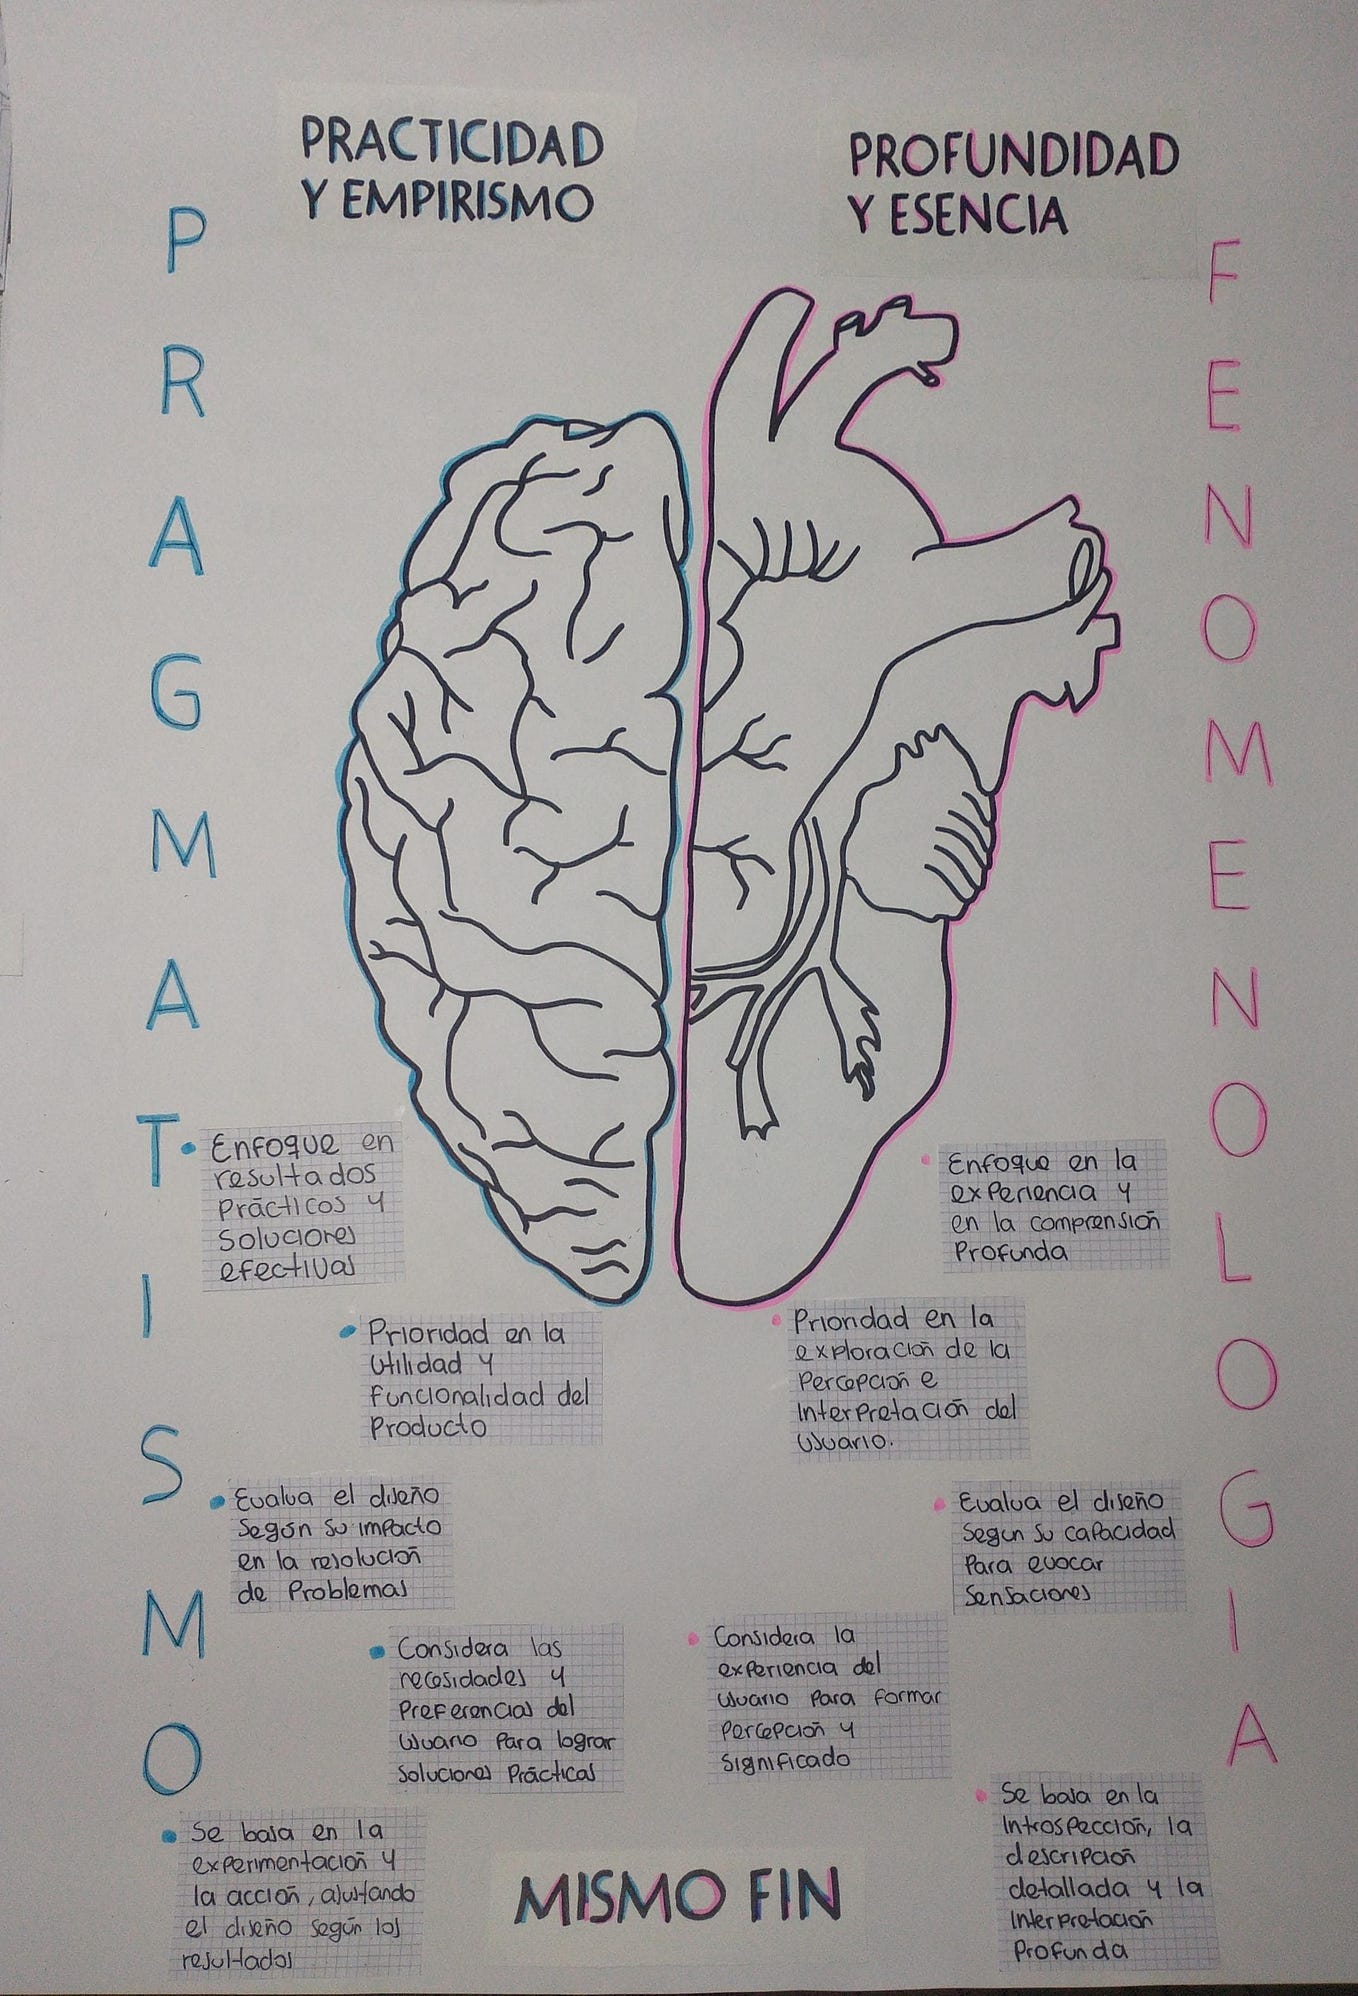 PRACTICIDAD
Y EMPIRISMO
PROFUNDIDAD
Y ESENCIA
PRAGMATISMO
FENOMENOLOGIA
• Enfoque en
resultados
Prácticos y
Soluciones
efectivas
• Prioridad en la
Utilidad y
funcionalidad del
Producto
• Evalua el diseño
Según su impacto
en la resolución
de Problemas
• Considera las
necesidades y
Preferencias del
Usuario Para lograr
Soluciones Prácticas
• Se basa en la
experimentación y
la acción, ajustando
el diseño según los
resultados
• Enfoque en la
experiencia y
en la comprensión
Profunda
• Prioridad en la
exploración de la
Percepción e
Interpretación del
Usuario.
• Evalua el diseño
Segun su capacidad
Para evocar
Sensaciones
• Considera la
experiencia del
Usuario Para formar
Percepción y
Significado
• Se basa en la
Introspección, la
descripción
detallada y la
Interpretación
Profunda
MISMO FIN